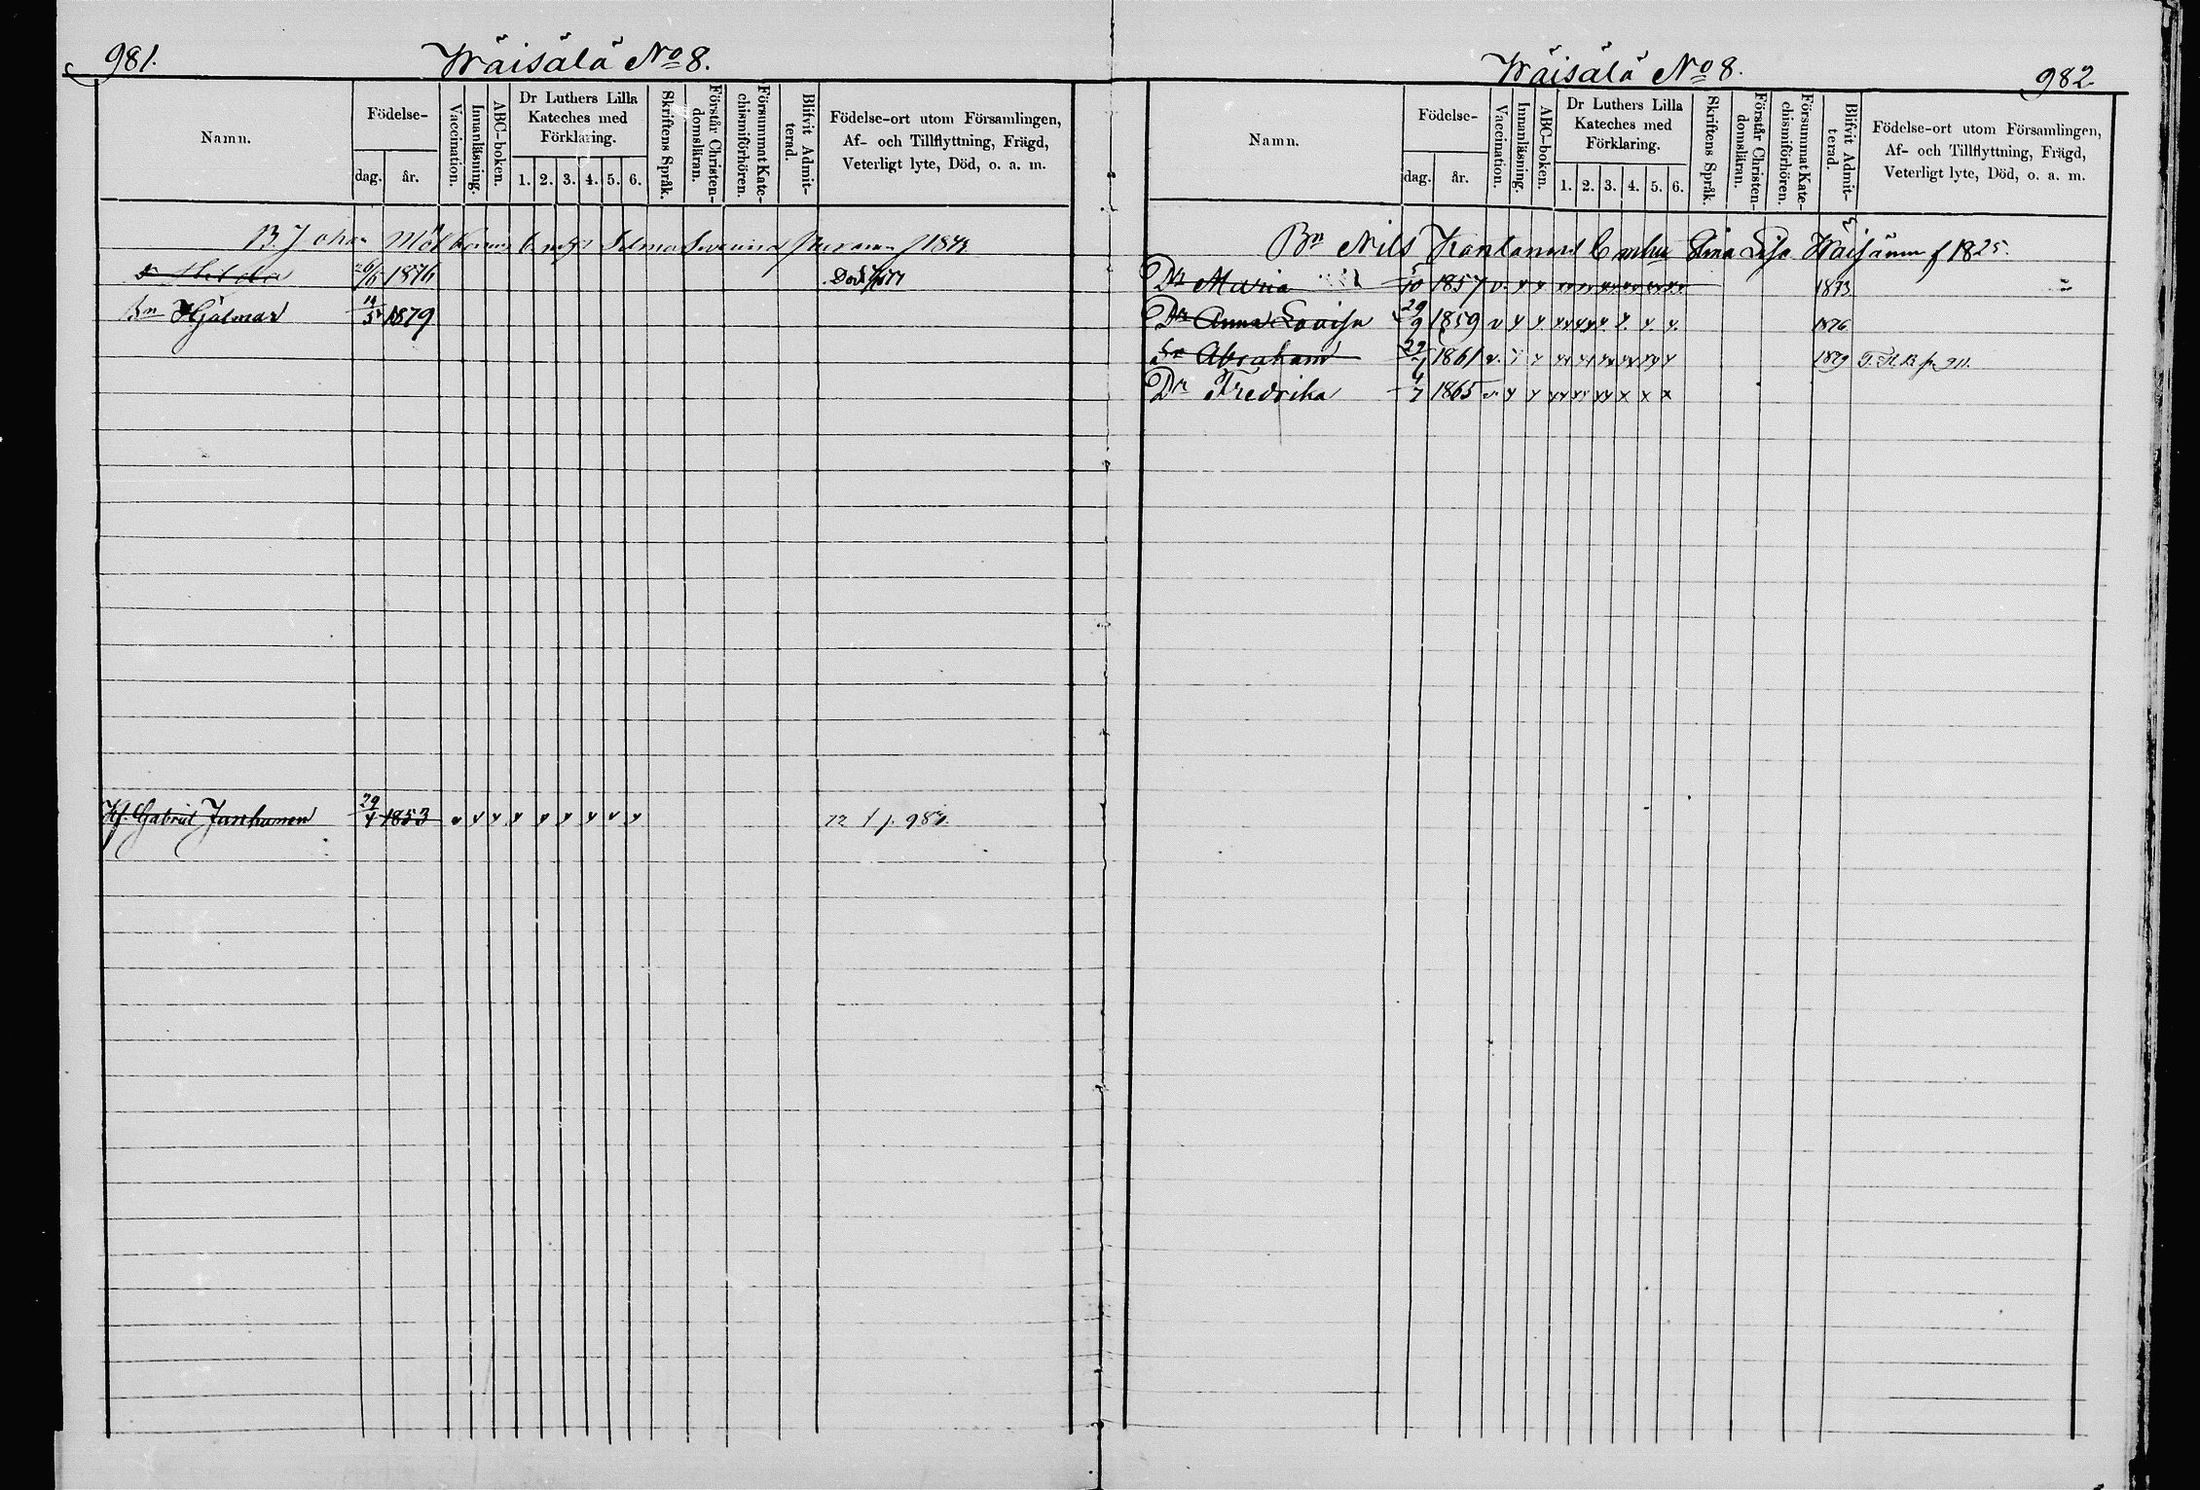 981.
Wäisälä No 8.
Namn.
Födelse-
dag.
år.
Vaccination.
Innanläsning.
ABC-boken.
Dr Luthers Lilla
Kateches med
Förklaring.
1. 2. 3. 4. 5. 6.
Skriftens Språk.
Förstår Christen-
domsläran.
Försummat Kate-
chismiförhören.
Blifvit Admit-
terad.
Födelse-ort utom Församlingen,
Af- och Tillflyttning, Frägd,
Veterligt lyte, Död, o. a. m.
B. Johan Selma Severina
1876 Död
Sn Hjalmar 1879
Hf. Gabriel Janhunen 29/4 1853 v y y y y y y y y
982.
Wäisälä No 8.
Namn.
Födelse-
dag.
år.
Vaccination.
Innanläsning.
ABC-boken.
Dr Luthers Lilla
Kateches med
Förklaring.
1. 2. 3. 4. 5. 6.
Skriftens Språk.
Förstår Christen-
domsläran.
Försummat Kate-
chismiförhören.
Blifvit Admit-
terad.
Födelse-ort utom Församlingen,
Af- och Tillflyttning, Frägd,
Veterligt lyte, Död, o. a. m.
Bn Nils Enka Lisa f 1825.
Dr Maria 5/10 1857 1873
Dr Anna Lovisa 29/9 1859 1876
Sn Abraham 29/1 1861 1879
Dr Fredrika 4/7 1865